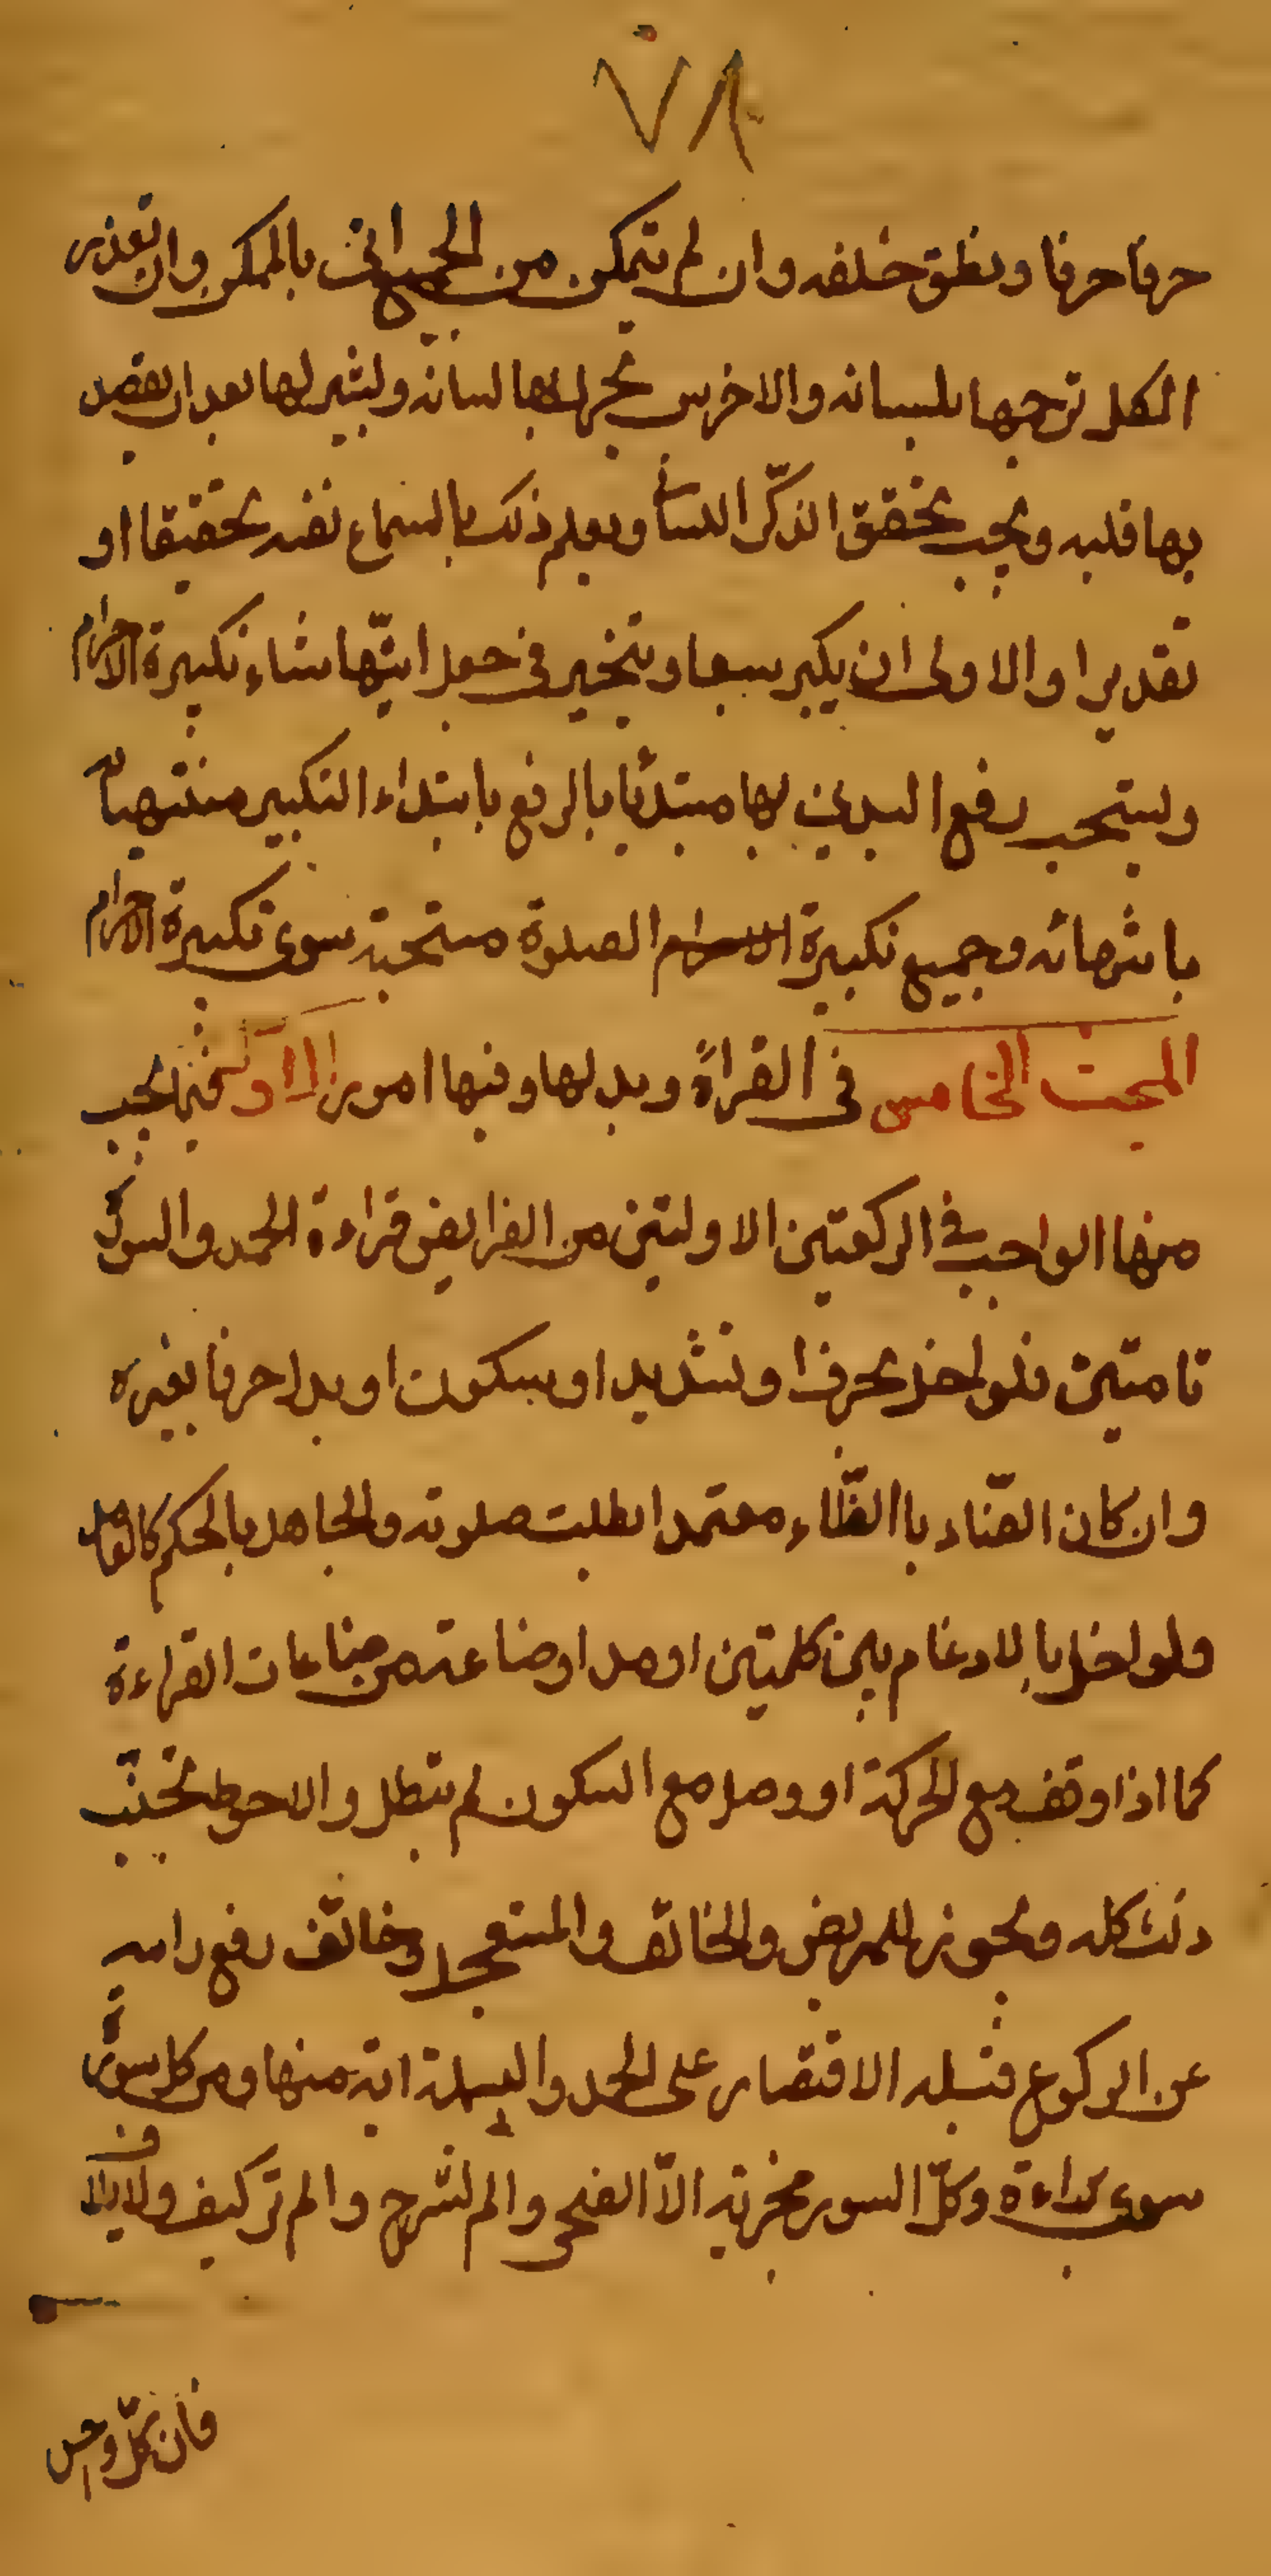 ٧٨
حرفا حرفا ونطق خلفه وان لم يتمكن من الجميع اتى بالممكن وان تعذر
الكل ترجمها بلسانه والاخرس يحرك بها لسانه ويشير لها بعد ان يقصد
بها قلبه ويجب تحقق الذكر اللساني ويعلم ذلك بالسماع نفسه تحقيقا او
تقديرا والاولى ان يكبر سبعا ويتخير في جعل ايتها شاء تكبيرة الاحرام
ويستحب رفع اليدين بها مبتدئا بالرفع بابتداء التكبير منتهيا
بانتهائه وجميع تكبيرة الصلوة مستحبة سوى تكبيرة الاحرام
المبحث الخامس في القراءة وبدلها وفيها امور الاول فيما يجب
منها الواجب في الركعتين الاوليتين من الفرايض قراءة الحمد والسورة
تامتين فلو اخل بحرف او تشديد او بسكون او بدل حرفا بغيره
وان كان الضاد باالظاء معتمدا بطلت صلوته والجاهل بالحكم كالعامد
ولو اخل بالادغام بين كلمتين او مد او صناعة من صناعات القراءة
كما اذا وقف مع الحركة او وصل مع السكون لم تبطل والاحوط تجنب
ذلك كله ويجوز للمريض والخائف والمستعجل وخائف رفع راسه
عن الركوع قبله الاقتصار على الحمد والبسملة اية منها ومن كل سورة
سوى براءة وكل السور مجزية الا الضحى والم نشرح والم تر كيف ولايلاف
فان كل وحس